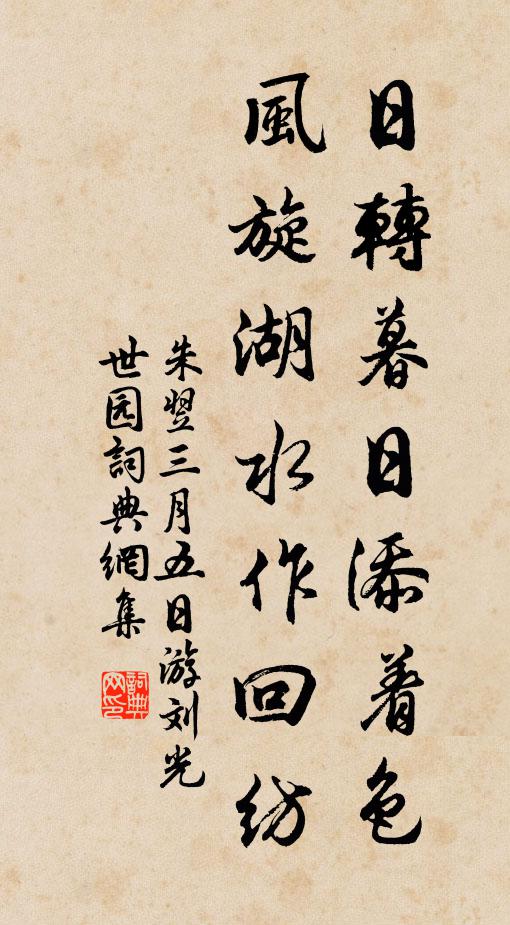 日轉暮日添着色
風旋湖水作回紡
朱翌三月五日游刘光
世园詞典網集
詞典网印